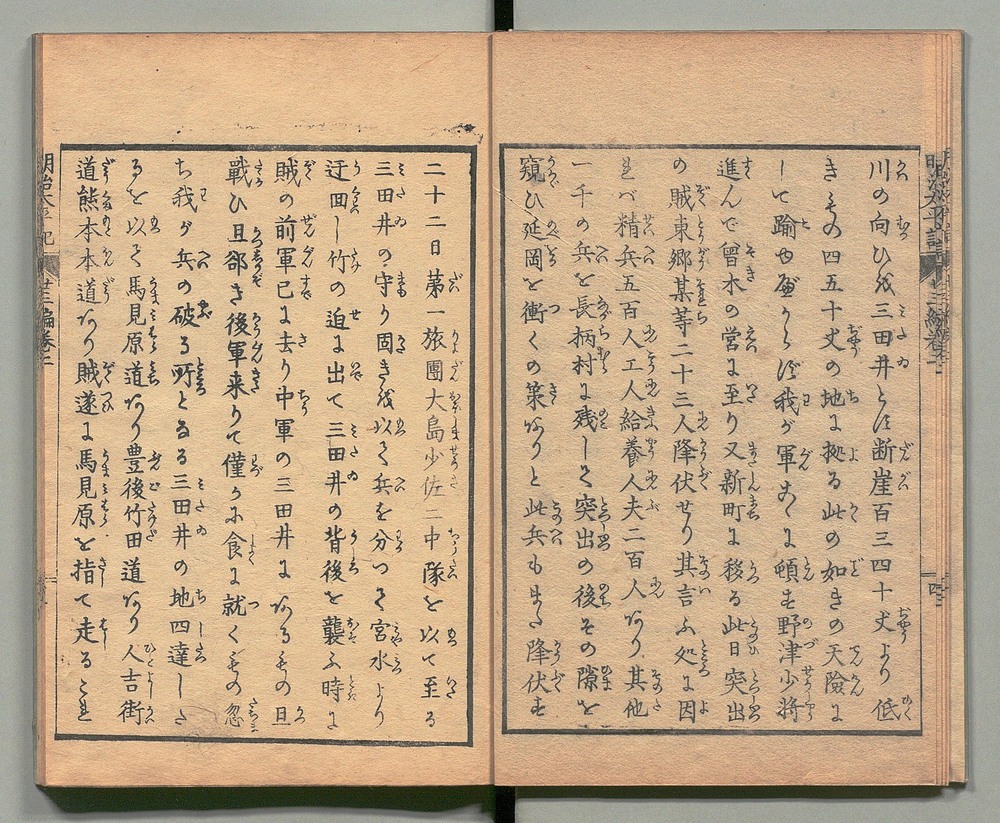 川の向ひ或三田井とは断崖百三四十丈より低
きもの四五十丈の地に拠る此の如きの天險に
して踰ゆ
べからず我が軍
に頓す野津少将
進んで曽木の営に至り又新町に移る此日突出
の賊東郷某等二十三人降伏せり其言ふ処に因
れバ精兵五百人工人給養人夫二百人あり其他
一千の兵を長柄村に残して突出の後その隙を
窺ひ延岡を衝くの策ありと此兵もまた降伏す
二十二日第一旅團大島少佐二中隊を以て至る
三田井の守り固きを以て兵を分つて宮水より
迂回し竹の迫に出て三田井の背後を襲ふ時に
賊の前軍已に去り中軍の三田井にあるもの且
戦ひ且郤き後軍来りて僅かに食に就くもの忽
ち我が兵の破る所となる三田井の地四達した
るを以て馬見原道あり豊後竹田道あり人吉街
道熊本本道あり賊遂に馬見原を指て走るこれ
明治太平記
廿三編巻之